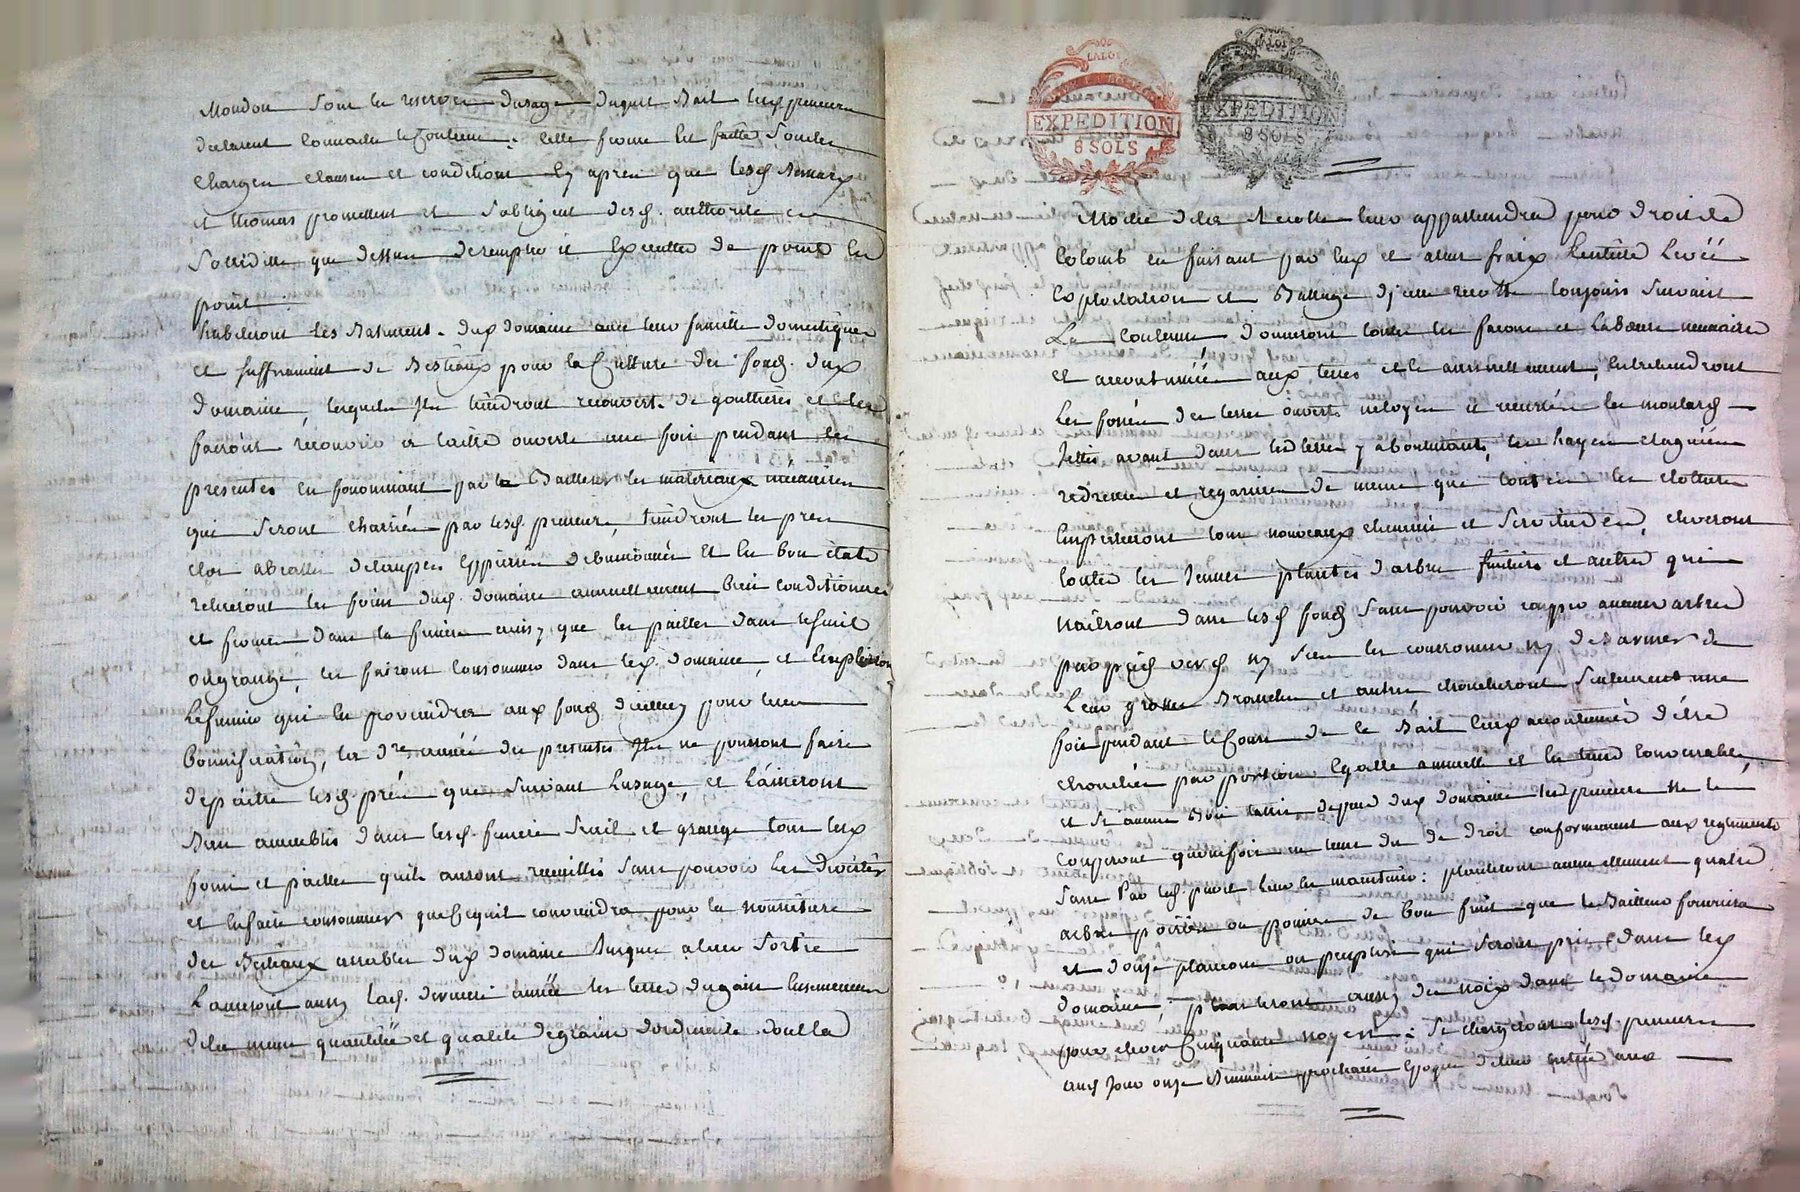 Moudon sous les reserves dusage duquel Bail lesd preneurs
declarent connoitre le Contenu. elle ferme est faitte sous les
charges clauses et conditions cy apres que lesd Bernard
et thomas promettent et sobligent desd. authorité et
Sollidité que dessus de remplir et Executter de point en
point
habiteront les Batiments dud domaine avec leur famille domestiques
et suffisament de Bestiaux pour la Culture des fonds. dud
domaine, lesquels Ils tiendront recouverts de gouttieres et les
fairont recouvrir à taille ouverte une fois pendant les
presentes en fournissant par le Bailleur les materiaux necessaires
qui seront charriés par lesd. preneurs tiendront les prés
clos abreuvés détaupés Eppierés débuissonnés Et en bon état
retireront les foins dud. domaine annuellement bien conditionnés
et fermés dans la feniere ainsy que les pailles dans le fenil
ou grange, les fairont consommer dans led. domaine, et Emploiront
le fumier qui en proviendra aux fonds dicelluy pour leur
Bonnification, la dre année des presentes Ils ne pourront faire
depaitre lesd. prés que suivant lusage, et laisseront
Bien amenblés dans lesd. feniere fenil et grange tous lesd
foins et pailles quils auront recueillis sans pouvoir les divertir
et en faire consommer que ce quil conviendra pour la nourriture
des Bestiaux arrables dud domaine Jusques a leur sortie
Laisseront aussy lad. derniere année les terres dugain Ensemencées
de la meme quantitée et qualité de grains dordinaire dont la
LA LOI
EXPEDITION
8 SOLS
LA LOI
EXPEDITION
8 SOLS
Moitié de la Recolte leur appartiendra pour droit de
Colomb en faisant par Eux et a leur fraix Lentiere Levée
Exploitation et Battage djcelle recolte toujours suivant
La Coutume donneront toutes les façons et labours necessaires
Et accoutumées aux terres et ce annuellement, Entretiendront
Les fossés des terres ouverts netoyés et recurés les
Jettés avant dans lesd terres y aboutissants, les hayes elaguées
redressées et regarnies de meme que toutes les clotures
Empecheront tous nouveaux chemins et servitudes, eleveront
toutes les Jeunes plantes darbres fruitiers et autres qui
naitront dans lesd fonds sans pouvoir couper aucuns arbres
par pied verd ny sec les couronner ny desarmer de
Leur grosses Branches et autres ebrancheront seulement une
fois pendant le Cours de ce Bail Ceux accoutumés dètre
ebranchés par portion Egalle annuelle et en temps convenable,
et Si aucun Bois taillis depend dud domaine lesd preneurs ne le
Couperont qu'une fois en temps du de droit conformement aux reglements
sans par lesd. pour leur la maintenir: planteront annuellement quatre
arbres poiriers ou pomiers de bon fruit que le Bailleur fournira
et douze plançons ou peupliers qui seront pris dans led
domaine, planteront aussy des noix dans le domaine
pour elever Cinquante noyers: Se chargeront lesd. preneurs
aud Jour onze Brumaire prochain Epoque de leur entrée aux